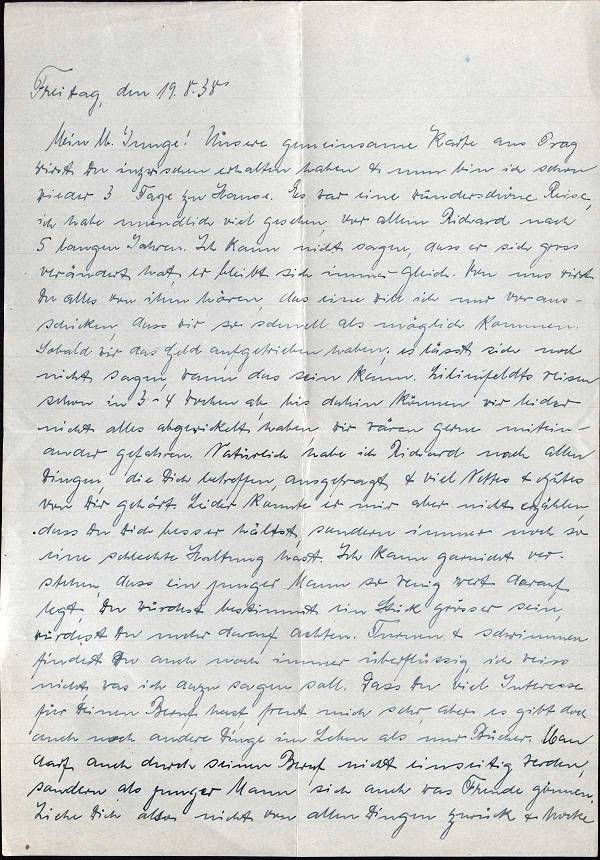 Freitag, den 19.8.38
Mein lb. Junge! Unsere gemeinsame Karte aus Prag
wirst Du inzwischen erhalten haben & nun bin ich schon
wieder 3 Tage zu Hause. Es war eine wunderschöne Reise,
ich habe unendlich viel gesehen, vor allem Richard nach
5 langen Jahren. Ich kann nicht sagen, dass er sich gross
verändert hat, er bleibt sich immer gleich. Von uns wirst
Du alles von ihm hören, das eine will ich nur voraus-
schicken, dass wir so schnell als möglich kommen.
Sobald wir das Geld aufgetrieben haben, es lässt sich noch
nicht sagen, wann das sein kann. Lilienfeldts reisen
schon in 3-4 Wochen ab, bis dahin können wir leider
nicht alles abgewickelt haben, wir wären gerne mitein-
ander gefahren. Natürlich habe ich Richard nach allen
Dingen, die Dich betreffen, ausgefragt & viel Nettes & Gutes
von Dir gehört. Leider konnte er mir aber nicht erzählen,
dass Du Dich besser hältst, sondern immer noch so
eine schlechte Haltung hast. Ich kann garnicht ver-
stehen, dass ein junger Mann so wenig wert darauf
legt, Du würdest bestimmt ein Stück grösser sein,
würdest Du mehr darauf achten. Turnen & schwimmen
findest Du auch noch immer überflüssig ich weiss
nicht was ich dazu sagen soll. Dass Du viel Interesse
für Deinen Beruf hast, freut mich sehr, aber es gibt doch
auch noch andere Dinge im Leben als nur Bücher. Man
darf auch durch seinen Beruf nicht einseitig werden,
sondern als junger Mann sich auch was Freude gönnen.
Ziehe Dich also nicht von allen Dingen zurück &